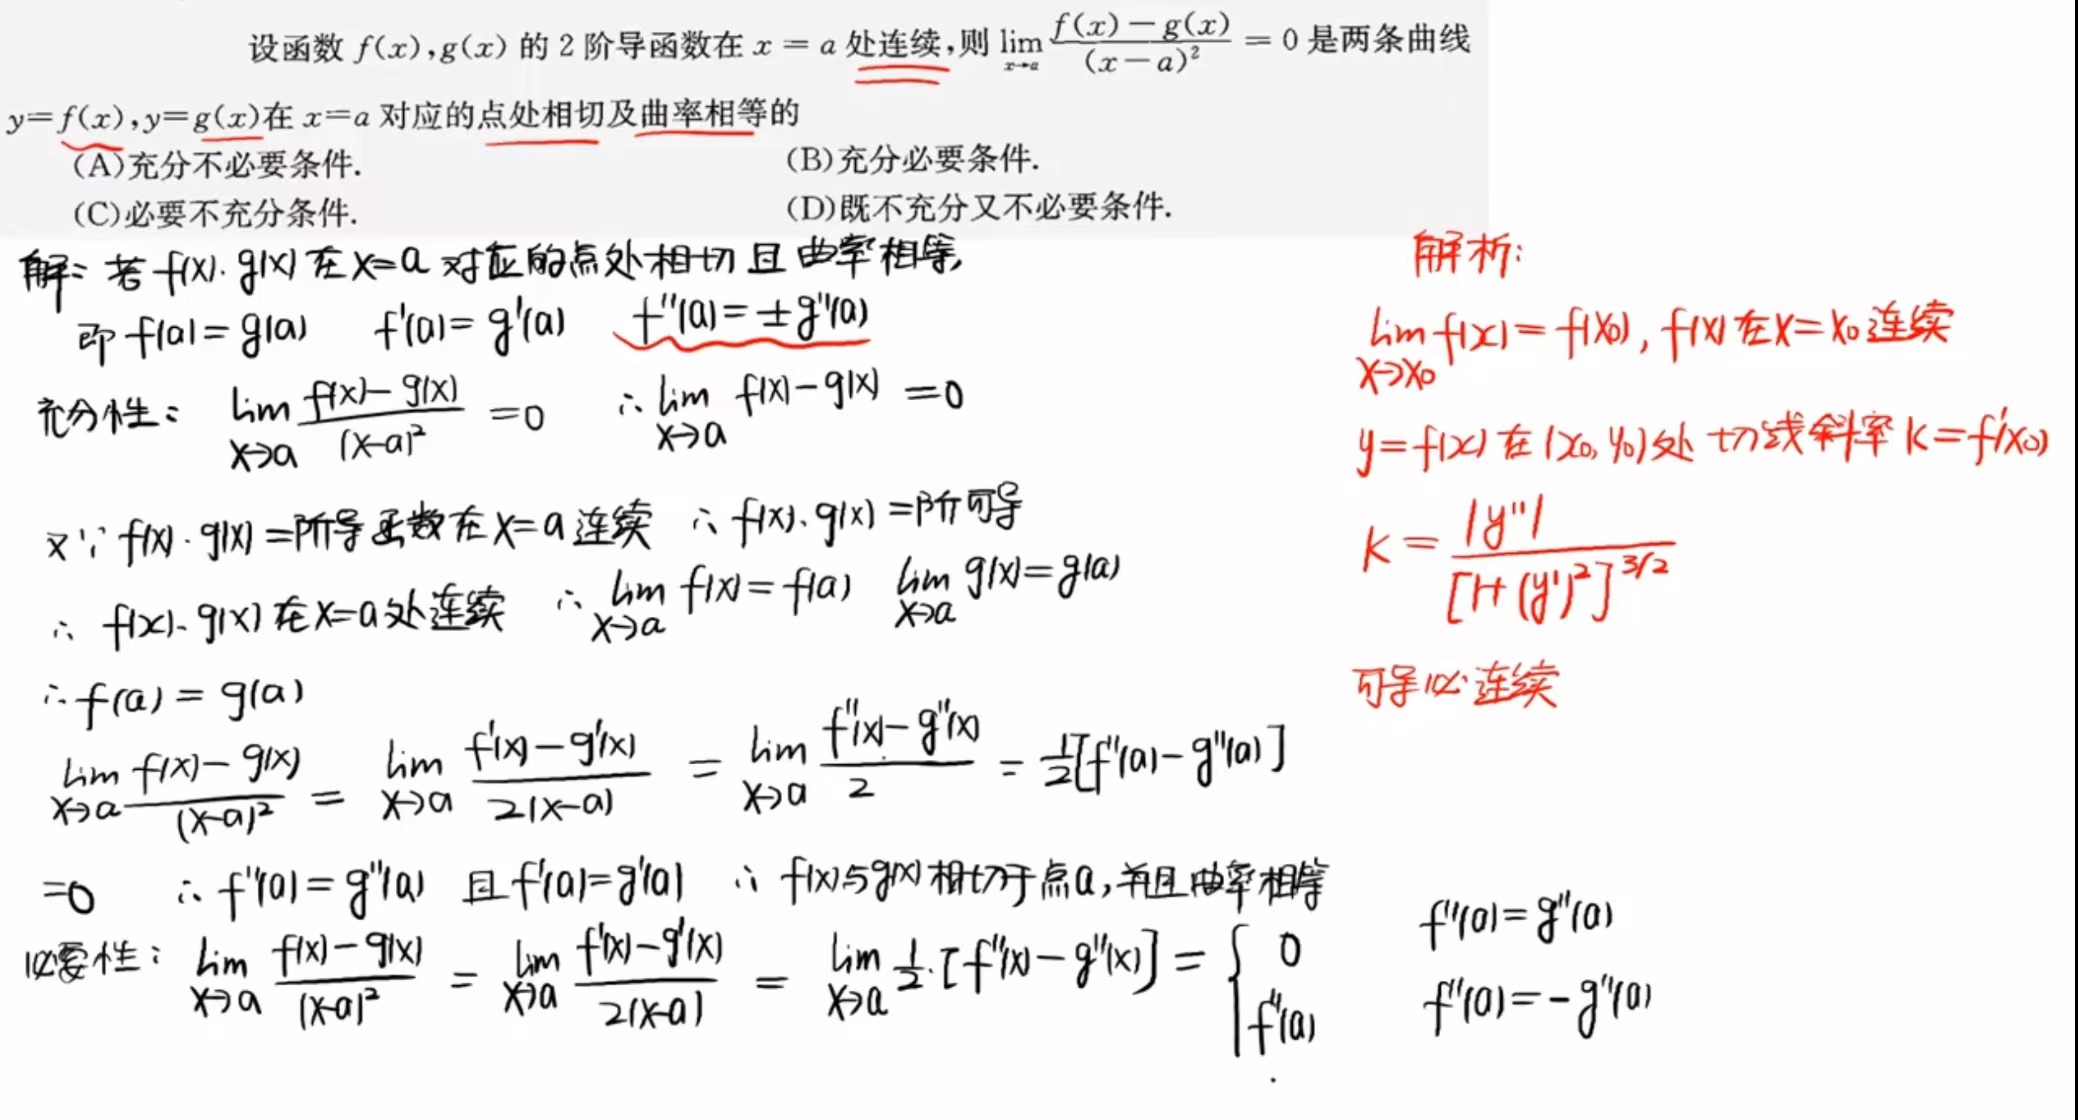 设函数 f(x),g(x) 的 2 阶导函数在 x = a 处连续,则 lim_{x→a} (f(x)-g(x))/(x-a)² = 0 是两条曲线
y=f(x),y=g(x)在 x=a 对应的点处相切及曲率相等的
(A)充分不必要条件. (B)充分必要条件.
(C)必要不充分条件. (D)既不充分又不必要条件.
解: 若 f(x). g(x) 在 x=a 对应的点处相切且曲率相等,
即 f(a)=g(a) f'(a)=g'(a) f''(a)=±g''(a)
充分性: lim_{x→a} (f(x)-g(x))/(x-a)² =0 ∴ lim_{x→a} f(x)-g(x) =0
又∵ f(x).g(x) 二阶导函数在 x=a 连续 ∴ f(x).g(x) 二阶可导
∴ f(x).g(x) 在 x=a 处连续 ∴ lim_{x→a} f(x)=f(a) lim_{x→a} g(x)=g(a)
∴ f(a)=g(a)
lim_{x→a} (f(x)-g(x))/(x-a)² = lim_{x→a} (f'(x)-g'(x))/2(x-a) = lim_{x→a} (f''(x)-g''(x))/2 = 1/2[f''(a)-g''(a)]
=0 ∴ f''(a)=g''(a) 且 f'(a)=g'(a) ∴ f(x)与g(x)相切于点a,并且曲率相等
必要性: lim_{x→a} (f(x)-g(x))/(x-a)² = lim_{x→a} (f'(x)-g'(x))/2(x-a) = lim_{x→a} 1/2·[f''(x)-g''(x)] = { 0 f''(a)=g''(a)
f''(a) f''(a)=-g''(a)
解析:
lim_{x→x₀} f(x)=f(x₀), f(x)在x=x₀连续
y=f(x)在(x₀,y₀)处切线斜率k=f'(x₀)
k = |y''|/[1+(y')²]^{3/2}
可导必连续